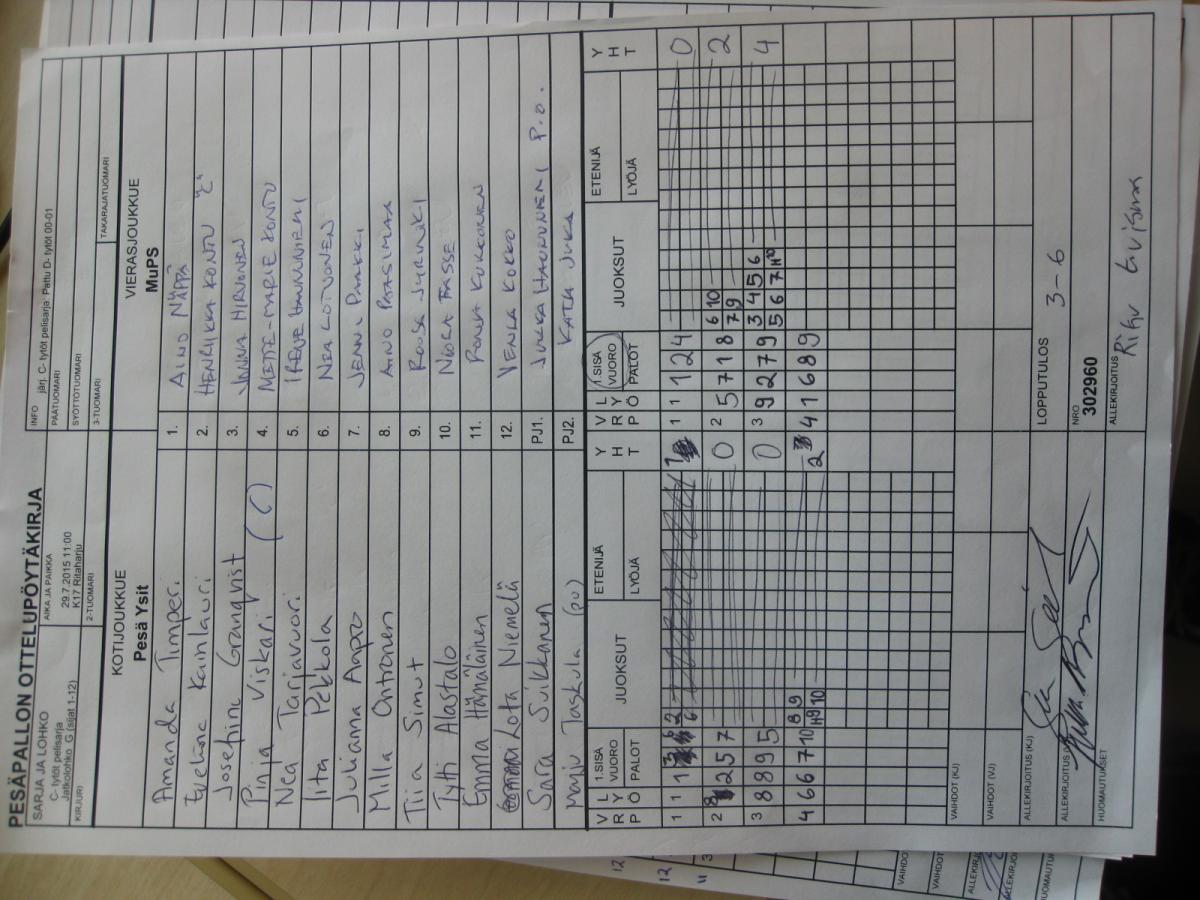 PESÄPALLON OTTELUPÖYTÄKIRJA
SARJA JA LOHKO
C- tytöt pelisarja
Jatkolohko G (sijat 1-12)
AIKA JA PAIKKA
29.7.2015 11:00
K17 Ritaharju
INFO järj. C- tytöt pelisarja Pattu D- tytöt 00-01
PÄÄTUOMARI
SYÖTTÖTUOMARI
KIRJURI
2-TUOMARI
3-TUOMARI
TAKARAJATUOMARI
KOTIJOUKKUE
Pesä Ysit
VIERASJOUKKUE
MuPS
Amanda Timperi 1. AINO NÄPPÄ
Eveliina Kainlauri 2. HENRIIKKA KONTU "C"
Josephine Granqvist 3. JANNA HIRVONEN
Pinja Viskari (C) 4. METTE-MARIE KONTU
Nea Tarjavuori 5. IRENE HAUKUNIEMI
Iita Pekkola 6. NEA LOTVONEN
Juliaana Aapro 7. JENNI PAAKKI
Milla Ontonen 8. AINO PAASIMAA
Tiia Simut 9. ROOSA JURUNKI
Tytti Alastalo 10. NOORA FASSE
Emma Hämäläinen 11. RONJA KUKKONEN
Lota Niemelä 12. VENLA KOKKO
Sara Suikkanen PJ1. JUKKA HAUKUNIEMI P.O.
Manju Taskula (pv) PJ2. KATJA JUKKA
V R P L Y Ö 1.SISÄ VUORO PALOT JUOKSUT ETENIJÄ LYÖJÄ Y H T V R P L Y Ö 1.SISÄ VUORO PALOT JUOKSUT ETENIJÄ LYÖJÄ Y H T
1 1 1 1 1 2 4 0
2 2 5 7 0 2 5 7 1 8 6 10 2
7 9
3 8 8 9 5 0 3 9 2 7 9 3 4 5 6 4
5 6 7 H10
4 6 6 7 10 8 9 2 4 1 6 8 9
H9 10
VAIHDOT (KJ)
VAIHDOT (VJ)
ALLEKIRJOITUS (KJ)
LOPPUTULOS 3-6
NRO
302960
HUOMAUTUKSET
ALLEKIRJOITUS